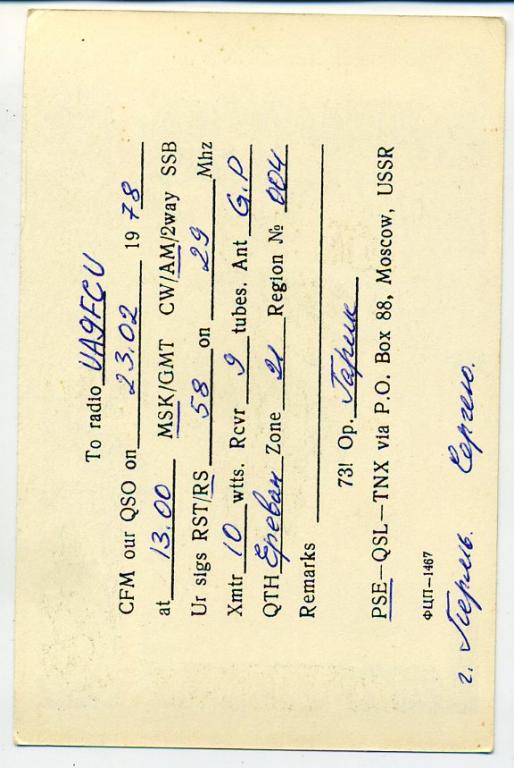 To radio UA9FCU
CFM our QSO on 23.02 1978
at 13.00 MSK/GMT CW/AM/2way SSB
Ur sigs RST/RS 58 on 29 Mhz
Xmtr 10 wtts. Rcvr 9 tubes. Ant G.P
QTH Ереван Zone 21 Region № 004
Remarks
73! Op. Гарик
PSE—QSL—TNX via P.O. Box 88, Moscow, USSR
ФЦП—1467
г. Пермь. Сергею.